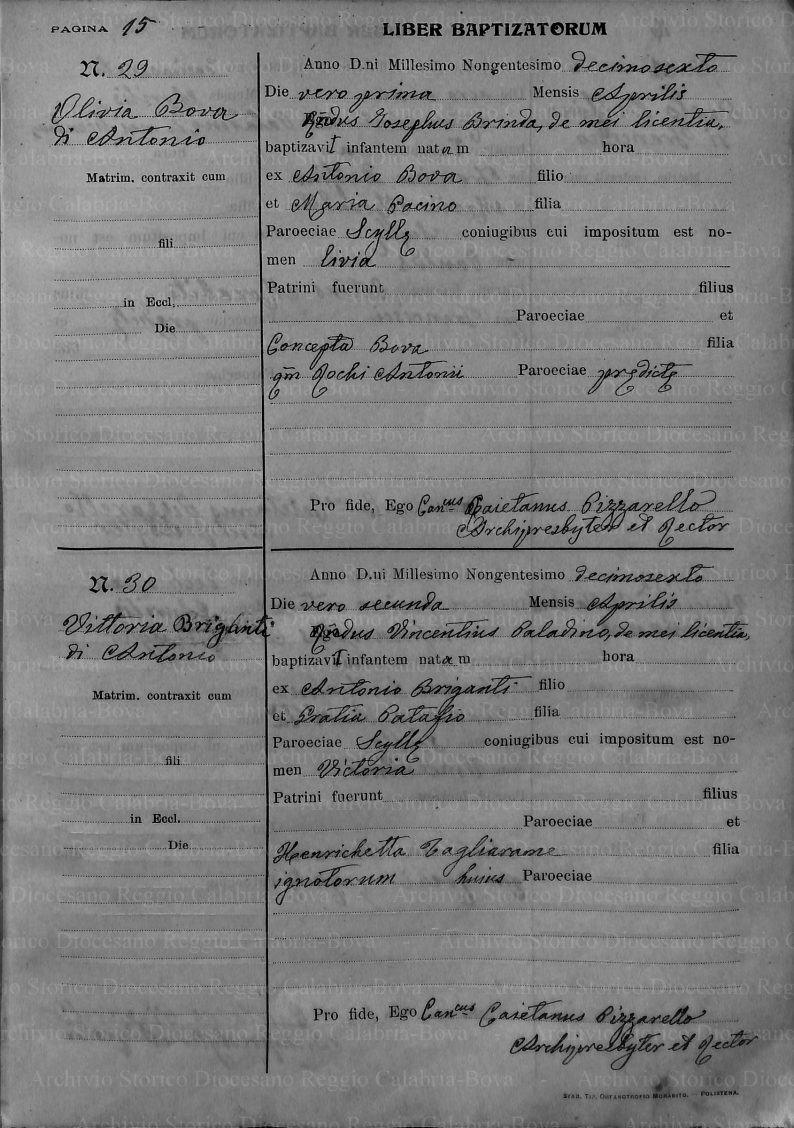 PAGINA 15 LIBER BAPTIZATORUM
N. 29
Olivia Bova
di Antonio
Matrim. contraxit cum
fili
in Eccl.
Die
Anno D.ni Millesimo Nongentesimo decimosexto
Die vero prima Mensis Aprilis
Rndus Josephus Brinda, de mei licentia,
baptizavit infantem natam hora
ex Antonio Bova filio
et Maria Pacino filia
Paroeciae Scyllę coniugibus cui impositum est no-
men livia
Patrini fuerunt filius
Paroeciae et
Concepta Bova filia
qm Rochi Antonii Paroeciae prędictę
Pro fide, Ego Can.cus Caietanus Pizzarello
Archipresbyter et Rector
N. 30
Vittoria Briganti
di Antonio
Matrim. contraxit cum
fili
in Eccl.
Die
Anno D.ni Millesimo Nongentesimo decimosexto
Die vero secunda Mensis Aprilis
Rndus Vincentius Paladino, de mei licentia,
baptizavit infantem natam hora
ex Antonio Briganti filio
et Gratia Patafio filia
Paroeciae Scyllę coniugibus cui impositum est no-
men Victoria
Patrini fuerunt filius
Paroeciae et
Henrichetta Tagliarame filia
ignotorum huius Paroeciae
Pro fide, Ego Can.cus Caietanus Pizzarello
Archipresbyter et Rector
STAB. TIP. ORFANOTROFIO MORABITO. - POLISTENA.
Archivio Storico Diocesano Reggio Calabria-Bova